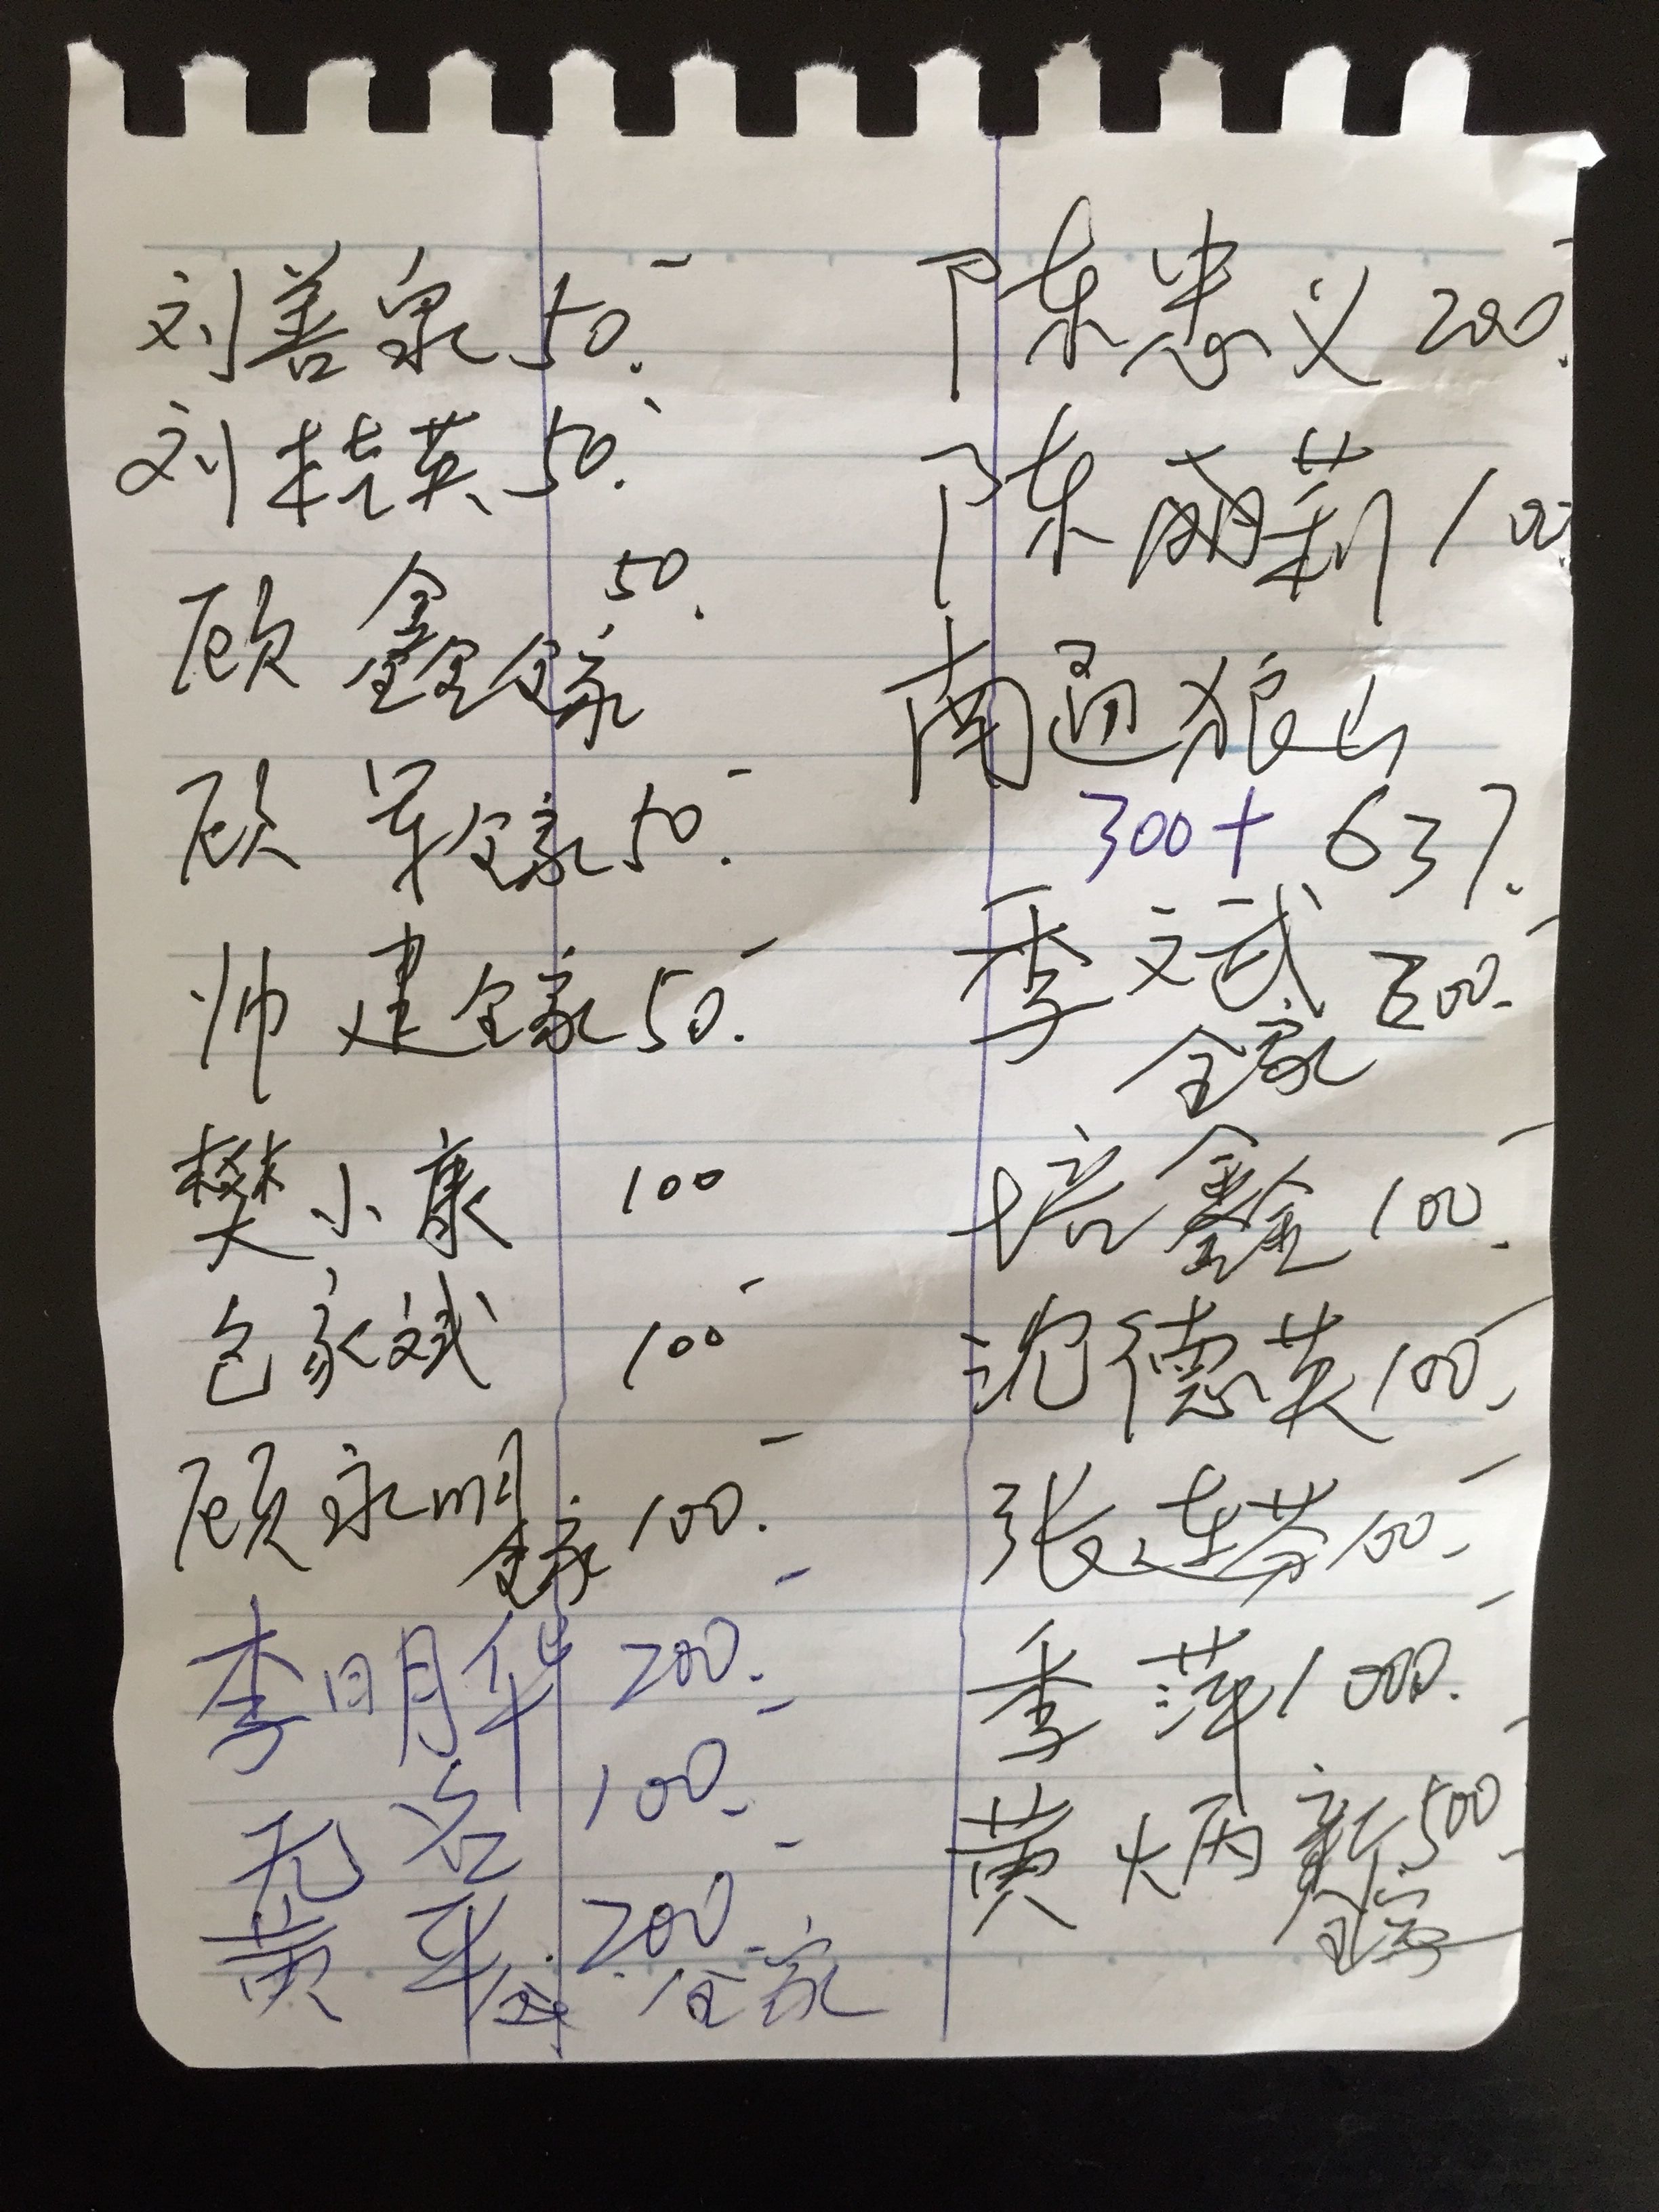 刘善泉 50.-
刘桂英 50.-
顾鑫全家 50.-
顾军全家 50.-
帅建全家 50.-
樊小康 100
包家斌 100-
顾永明全家 100.-
李明华 200.-
无名 100.-
黄平 200.-
全家
陈忠义 200.-
陈丽莉 100
南通狼山
300+637.
季文武 200.-
全家
培鑫 100.-
沈德英 100.-
张连芬 100.-
季萍 1000.-
黄炳新 500.-
全家